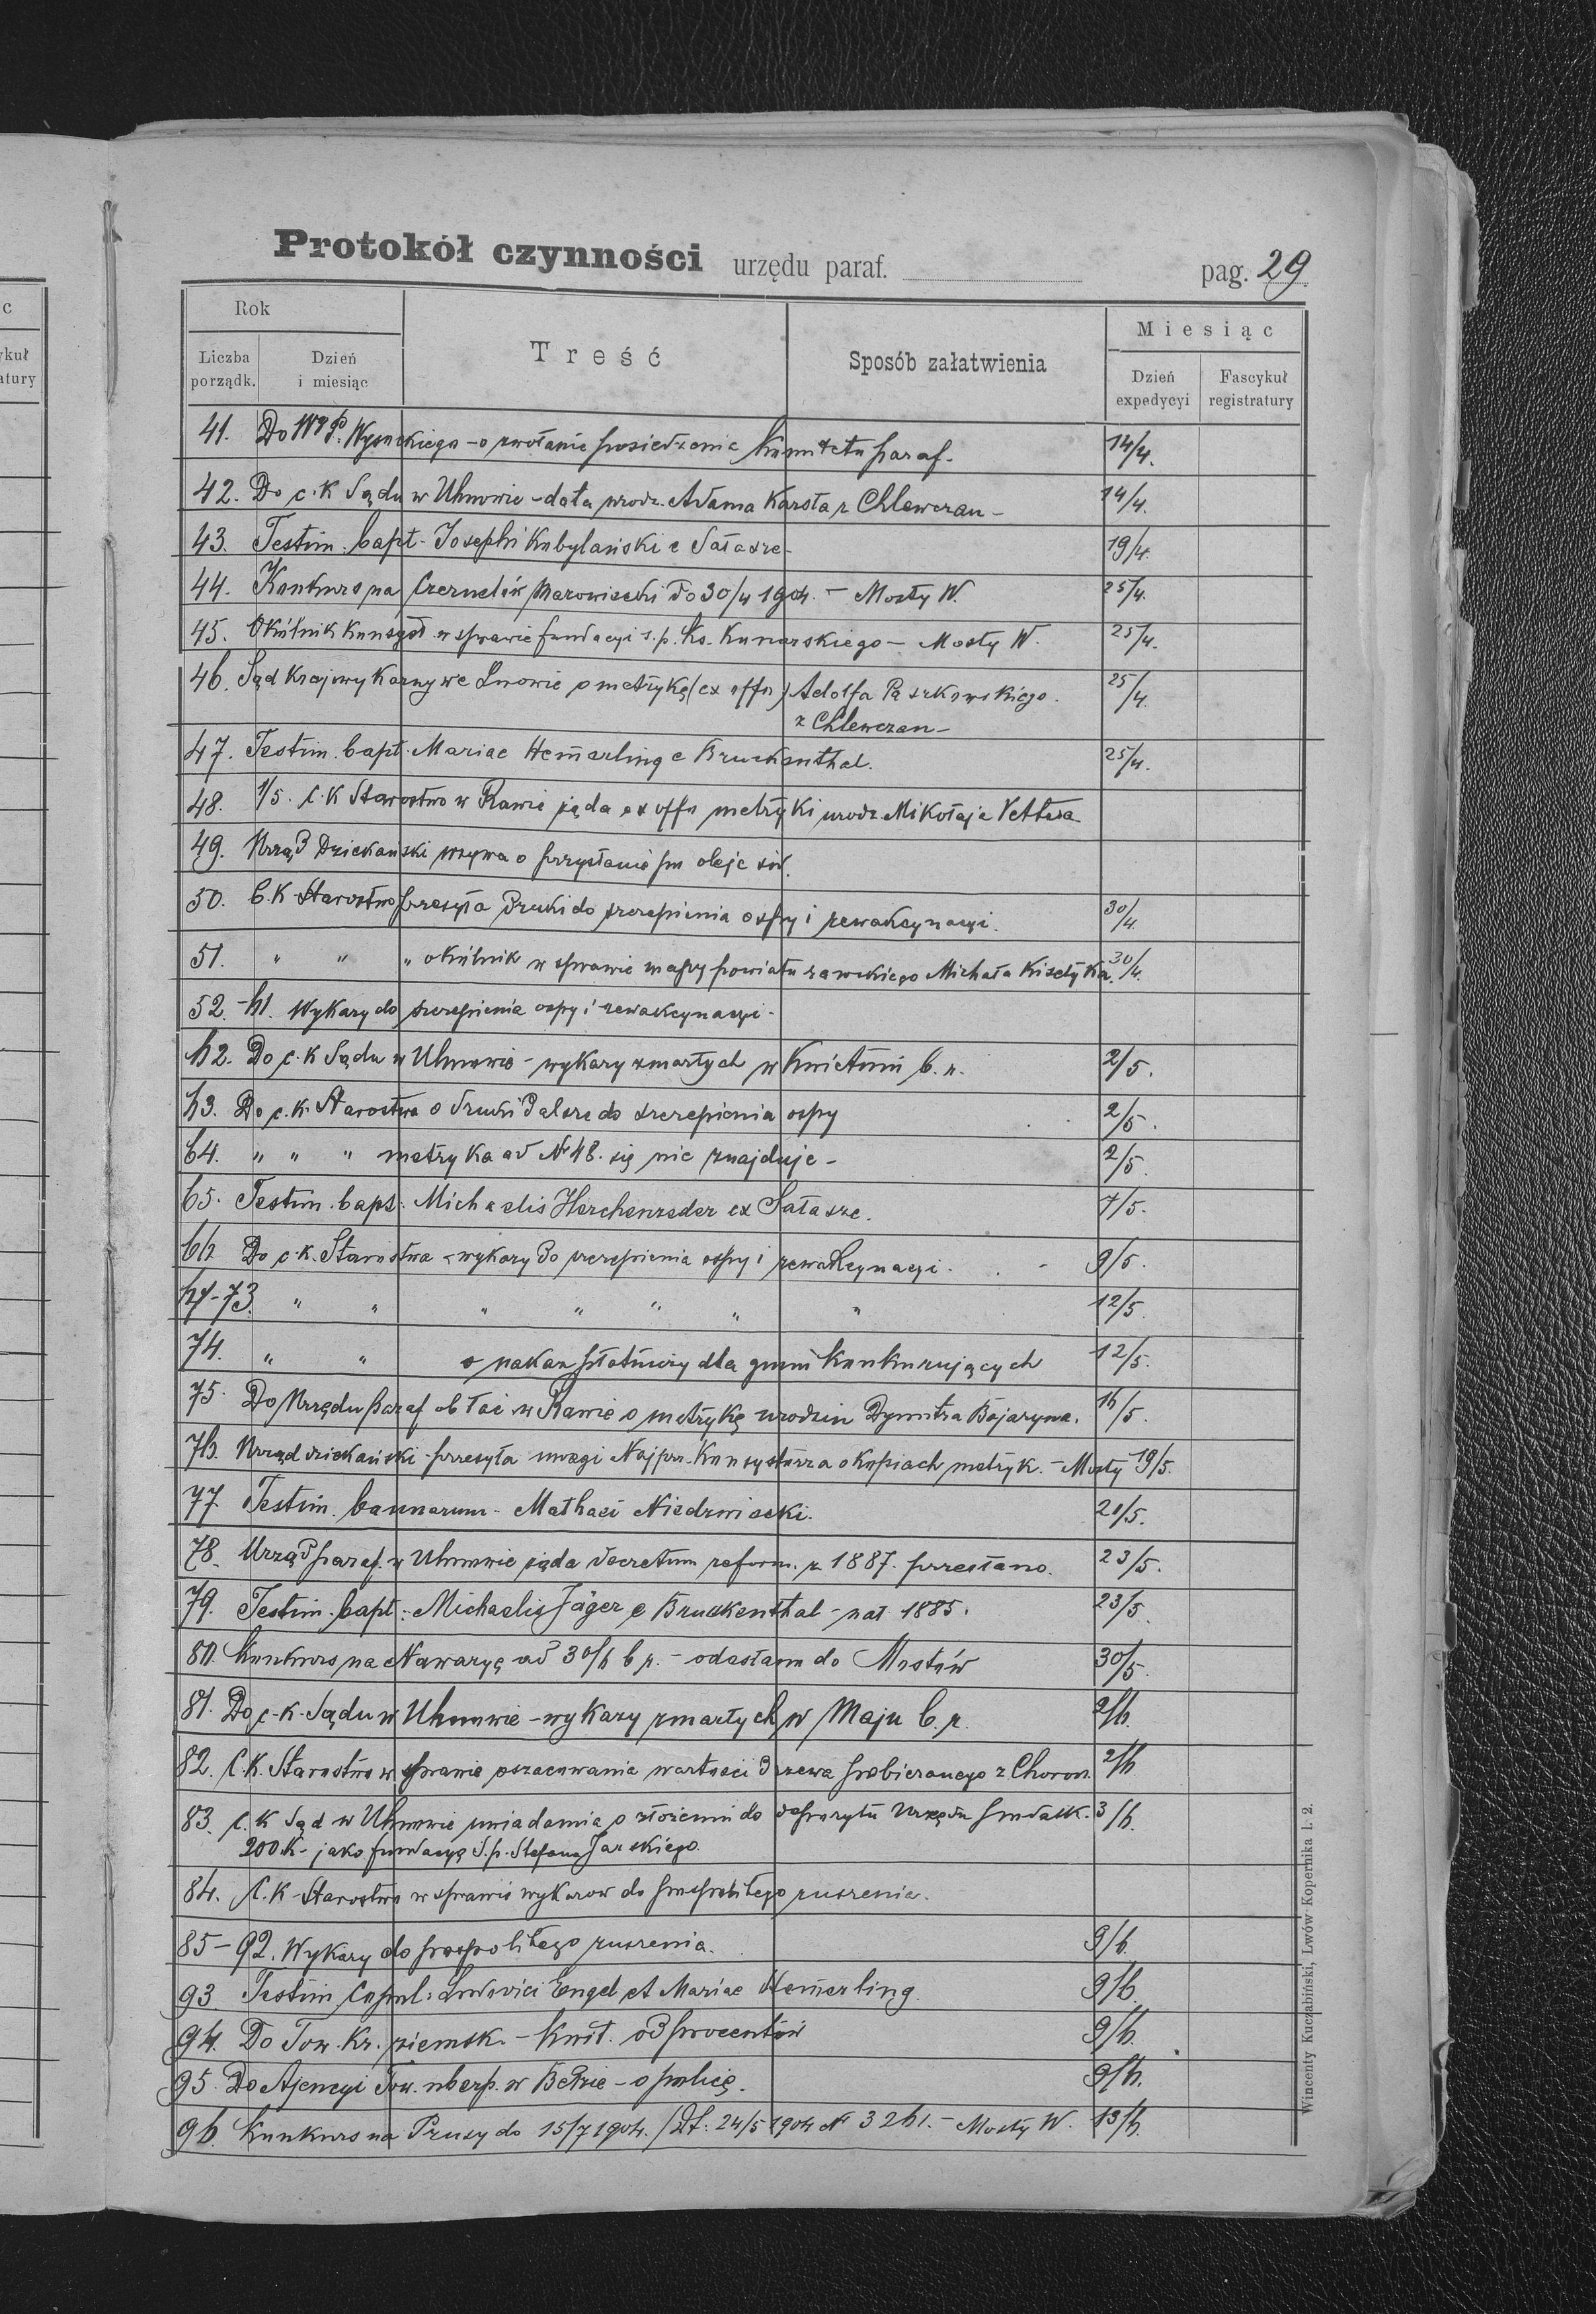 c
ykuł
atury
Protokół czynności urzędu paraf. pag. 29
Rok
Miesiąc
Liczba porządk. Dzień i miesiąc Treść Sposób załatwienia Dzień expedycyi Fascykuł registratury
41. Do WP. Wysockiego - o zwołanie posiedzenia Komitetu paraf. 14/4.
42. Do c.k Sądu w Uhnowie - data urodz. Adama Karsta z Chlewczan - 14/4.
43. Testim. bapt. Josephi Kobylański e Sałasze - 19/4.
44. Konkurs na Czernelik Mazowiecki do 30/4 1904. - Mosty W. 25/4.
45. Okólnik Konsyst. w sprawie fundacyi s.p. Ks. Kunarskiego - Mosty W. 25/4.
46. Sąd Krajowy Karny we Lwowie o metrykę (ex offo) Adolfa Paszkowskiego 25/4
z Chlewczan -
47. Testim. bapt. Mariae Hem̄erling e Bruckenthal. 25/4.
48. 1/5. C.K Starostwo w Rawie żąda ex offo metryki urodz. Mikołaja Vettera
49. Urząd Dziekański wzywa o przysłanie po oleje św.
50. C.K Starostwo przesyła druki do szczepienia ospy i rewakcynacyi. 30/4.
51. " " " okólnik w sprawie mapy powiatu rawskiego Michała Kisełyka. 30/4.
52. - 61. Wykazy do szczepienia ospy i rewakcynacyi -
62. Do c.k Sądu w Uhnowie - wykazy zmarłych w Kwietniu b.r. 2/5.
63. Do c.k. Starostwa o druki dalsze do szczepienia ospy 2/5.
64. " " " metryka ad N 48. się nie znajduje - 2/5.
65. Testim. bapt. Michaelis Herchenreder ex Sałasze. 7/5.
66 Do c.k. Starostwa - wykazy do szczepienia ospy i rewakcynacyi - 9/5.
67-73. " " " " " " " 12/5.
74. " " o nakaz płatniczy dla gmin konkurujących 12/5.
75. Do Urzędu paraf ob łac w Rawie o metrykę urodzin Dymitra Bojaryna. 16/5.
76. Urząd dziekański przesyła uwagi Najprz. Konsystorza o kopiach metryk. - Mosty 19/5.
77 Testim. bannorum - Mathaei Niedzwiecki. 20/5.
78. Urząd paraf. w Uhnowie żąda decretum reform. z 1887. przesłano. 23/5.
79. Testim. bapt. Michaelis Jäger e Bruckenthal - nat 1885. 23/5.
80. Konkurs na Nawaryę ad 30/6 b r. - odesłano do Mostów 30/5.
81. Do c.k. Sądu w Uhnowie - wykazy zmarłych w Maju b.r. 2/6.
82. C.K. Starostwo w sprawie oszacowania wartości drzewa pobieranego z Choron. 2/6
83. C.K Sąd w Uhnowie uwiadamia o złożeniu do depozytu Urzędu podatk. 3/6.
200 K - jako fundacyę S.p. Stefana Jarskiego.
84. C.K Starostwo w sprawie wykazow do pospolitego ruszenia.
85-92. Wykazy do pospolitego ruszenia. 9/6.
93. Testim Copul. Ludovici Engel et Mariae Hem̄erling. 9/6.
94. Do Tow. Kr. ziemsk. - Kwit. od procentów 9/6.
95. Do Ajencyi Tow. ubezp. w Bełzie - o policę. 9/6.
96. Konkurs na Prusy do 15/7 1904. / Dt: 24/5 1904 N 3261. - Mosty W. 13/6.
Wincenty Kuczabiński, Lwów Kopernika l. 2.